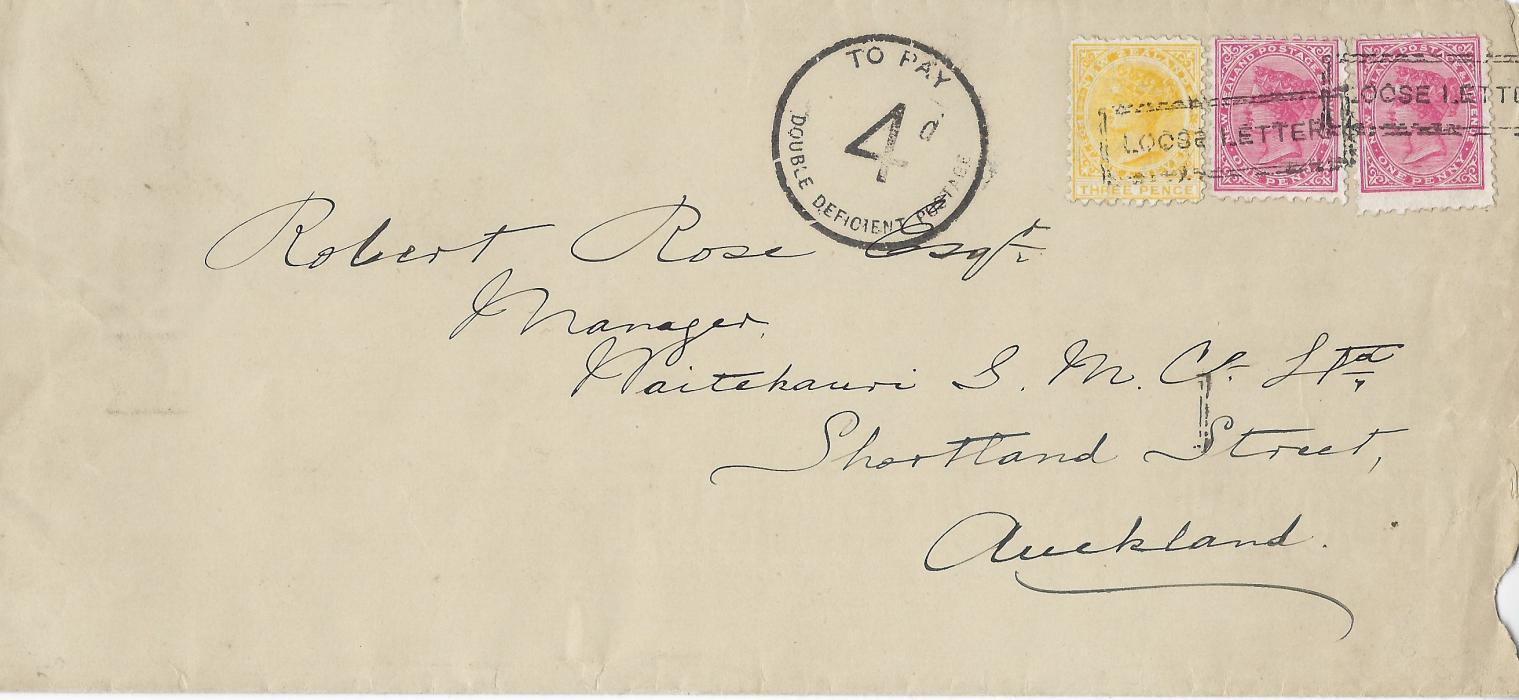 TO PAY
4d.
DOUBLE DEFICIENT POSTAGE
NEW ZEALAND
THREE PENCE
LOOSE LETTER
NEW ZEALAND POSTAGE
ONE PENNY
LOOSE LETTE
Robert Rose Esqr.
Manager,
Waitekauri G. M. Co. Ltd,
Shortland Street,
Auckland.